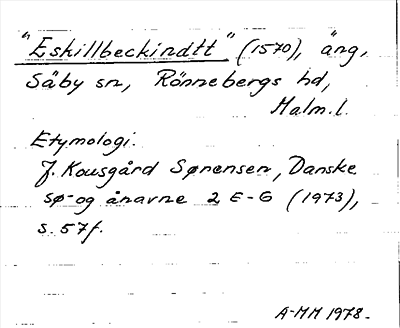 "Eskillbeckindtt" (1570), äng,
Säby sn, Rönnebergs hd,
Malm.l.
Etymologi:
J. Kousgård Sørensen, Danske
sø- og ånavne 2 E-G (1973),
s. 57f.
A-MM 1978.